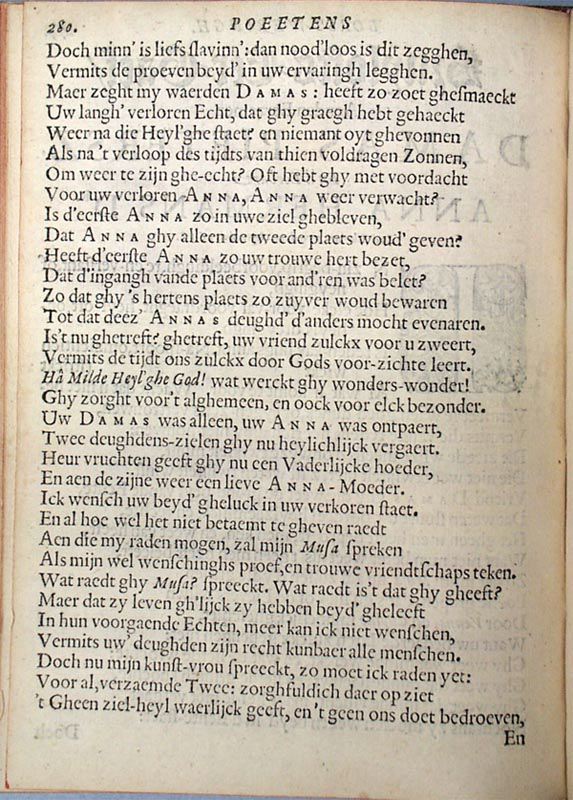 280. POEETENS
Doch minn' is liefs slavinn': dan nood'loos is dit zegghen,
Vermits de proeven beyd' in uw ervaringh legghen.
Maer zeght my waerden DAMAS: heeft zo zoet ghesmaeckt
Uw langh' verloren Echt, dat ghy graegh hebt gehaeckt
Weer na die Heyl'ghe staet? en niemant oyt ghevonnen
Als na 't verloop des tijdts van thien voldragen Zonnen,
Om weer te zijn ghe-echt? Oft hebt ghy met voordacht
Voor uw verloren ANNA, ANNA weer verwacht?
Is d'eerste ANNA zo in uwe ziel ghebleven,
Dat ANNA ghy alleen de tweede plaets woud' geven?
Heeft d'eerste ANNA zo uw trouwe hert bezet,
Dat d'ingangh vande plaets voor and'ren was belet?
Zo dat ghy 's hertens plaets zo zuyver woud bewaren
Tot dat deez' ANNAS deughd' d'anders mocht evenaren.
Is't nu ghetreft? ghetreft, uw vriend zulckx voor u zweert,
Vermits de tijdt ons zulckx door Gods voor-zichte leert.
Hâ Milde Heyl'ghe God! wat werckt ghy wonders-wonder!
Ghy zorght voor't alghemeen, en oock voor elck bezonder.
Uw DAMAS was alleen, uw ANNA was ontpaert,
Twee deughdens-zielen ghy nu heylichlijck vergaert.
Heur vruchten geeft ghy nu een Vaderlijcke hoeder,
En aen de zijne weer een lieve ANNA-Moeder.
Ick wensch uw beyd' gheluck in uw verkoren staet.
En al hoe wel het niet betaemt te gheven raedt
Aen die my raden mogen, zal mijn Musa spreken
Als mijn wel wenschinghs proef, en trouwe vriendtschaps teken.
Wat raedt ghy Musa? spreeckt. Wat raedt is't dat ghy gheeft?
Maer dat zy leven gh'lijck zy hebben beyd' gheleeft
In hun voorgaende Echten, meer kan ick niet wenschen,
Vermits uw' deughden zijn recht kunbaer alle menschen.
Doch nu mijn kunst-vrou spreeckt, zo moet ick raden yet:
Voor al, verzaemde Twee: zorghfuldich daer op ziet
't Gheen ziel-heyl waerlijck geeft, en 't geen ons doet bedroeven,
En